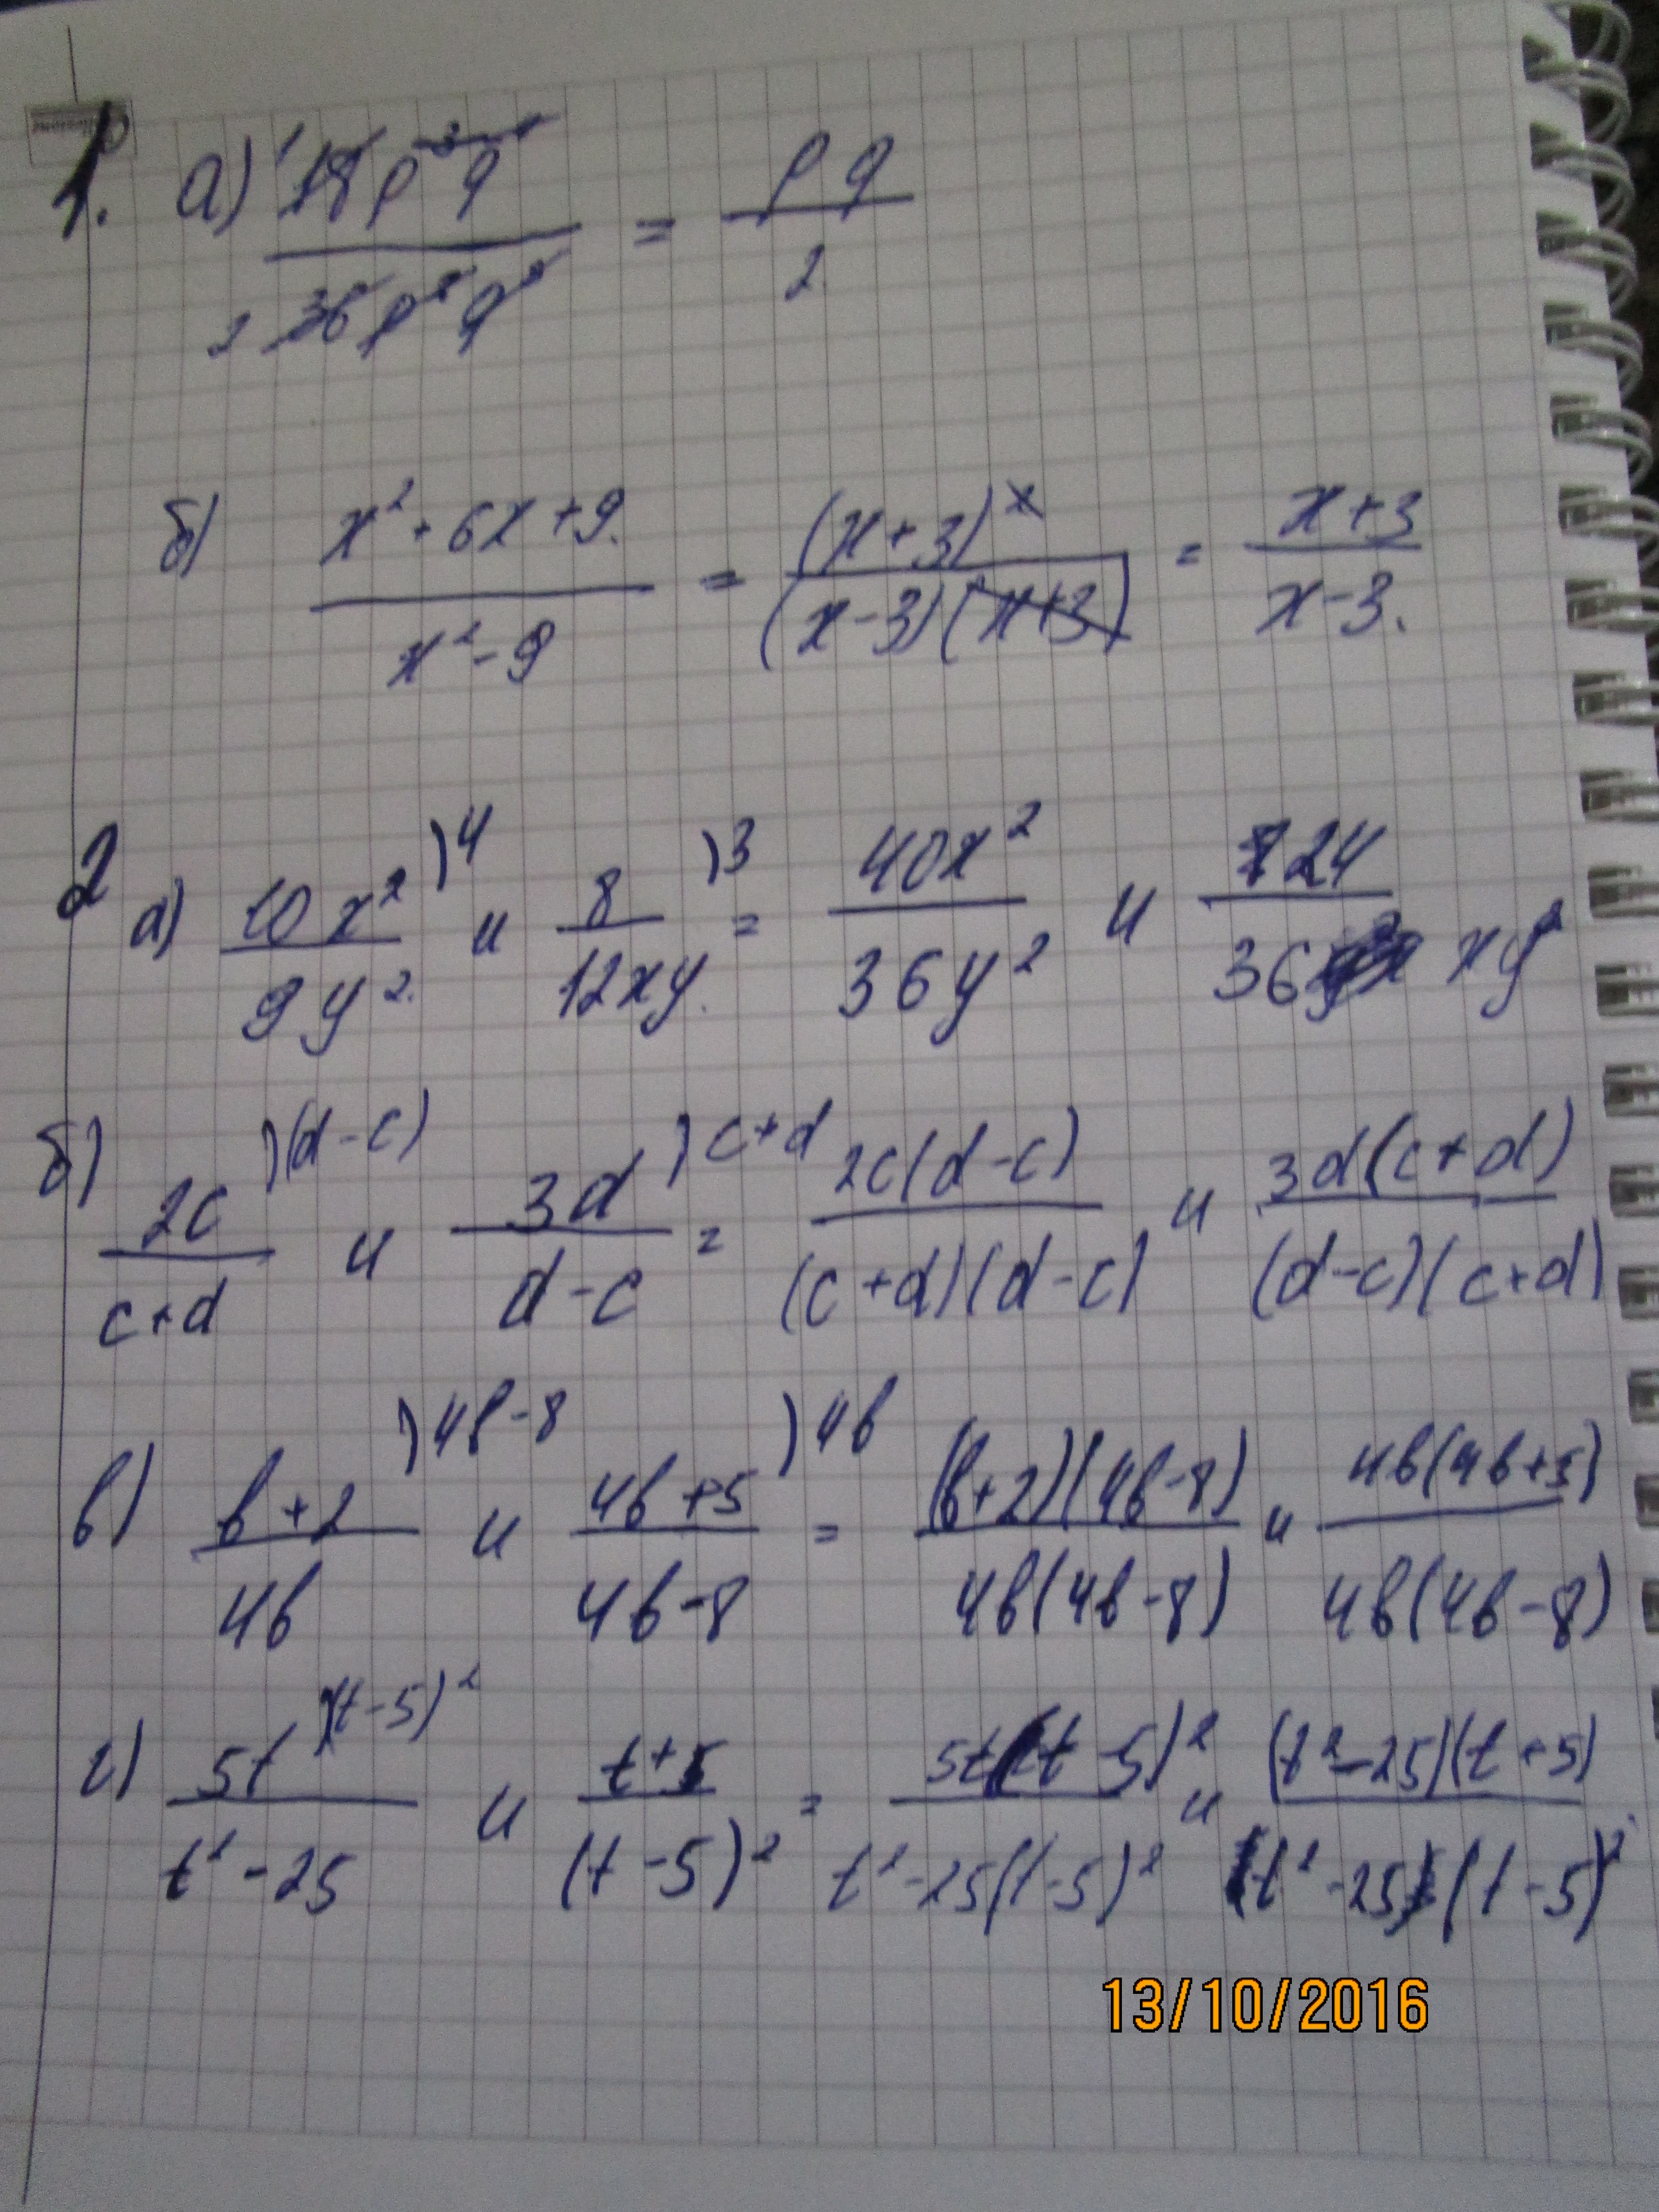 1. а) 18p³q⁴ / 36p²q³ = pq / 2
б) x² + 6x + 9. / x² - 9 = (x+3)² / (x-3)(x+3) = x+3 / x-3.
2 а) 10x² / 9y². )4 и 8 / 12xy. )3 = 40x² / 36y² и 24 / 36 xy²
б) 2c / c+d )(d-c) и 3d / d-c )c+d = 2c(d-c) / (c+d)(d-c) и 3d(c+d) / (d-c)(c+d)
в) b+2 / 4b )4b-8 и 4b+5 / 4b-8 )4b = (b+2)(4b-8) / 4b(4b-8) и 4b(4b+5) / 4b(4b-8)
г) 5t / t²-25 )(t-5)² и t+5 / (t-5)² = 5t(t-5)² / t²-25(t-5)² и (t²-25)(t+5) / (t²-25)(t-5)²
13/10/2016